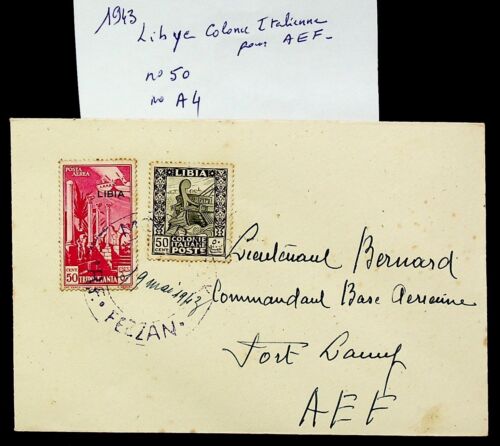 1943
Libye Colonie Italienne
pour AEF-
no 50
no A4
POSTA AEREA
LIBIA
CENT 50
TRIPOLITANIA
LIBIA
50 CENT
COLONIE ITALIANE
POSTE
9 mai 1943
FEZZAN
Lieutenant Bernard
Commandant Base Aerienne
Fort Lamy
AEF